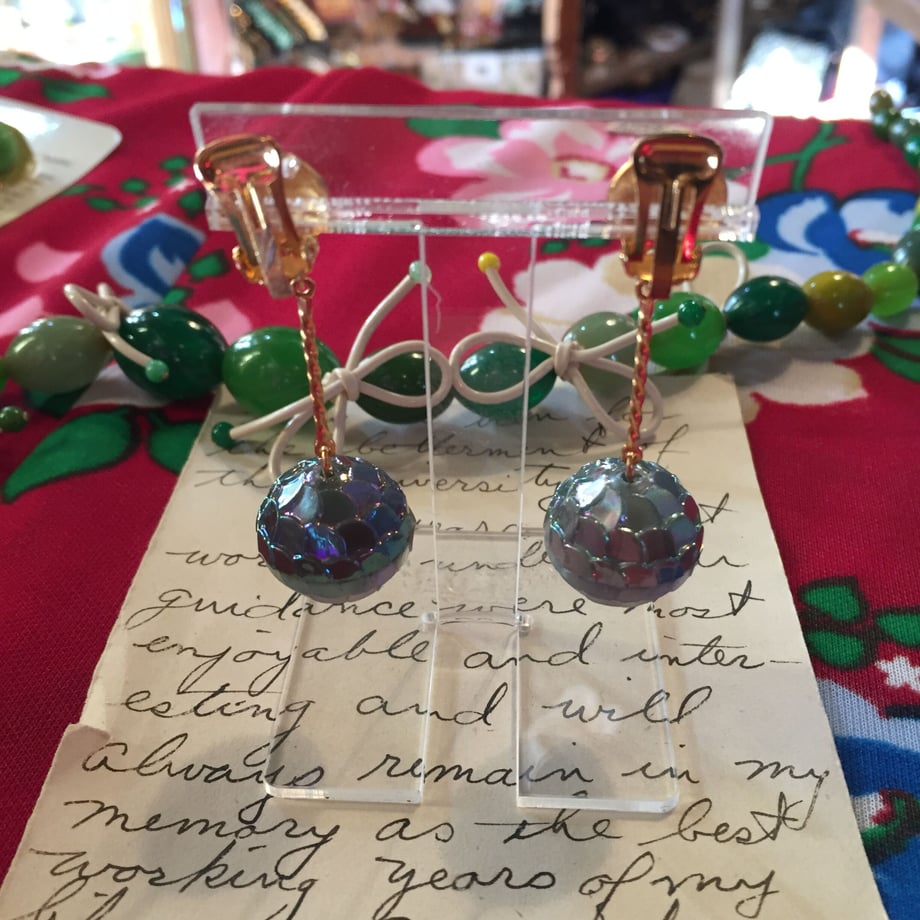 the betterment of
the university
wor under our
guidance were most
enjoyable and inter-
esting and will
always remain in my
memory as the best
working years of my